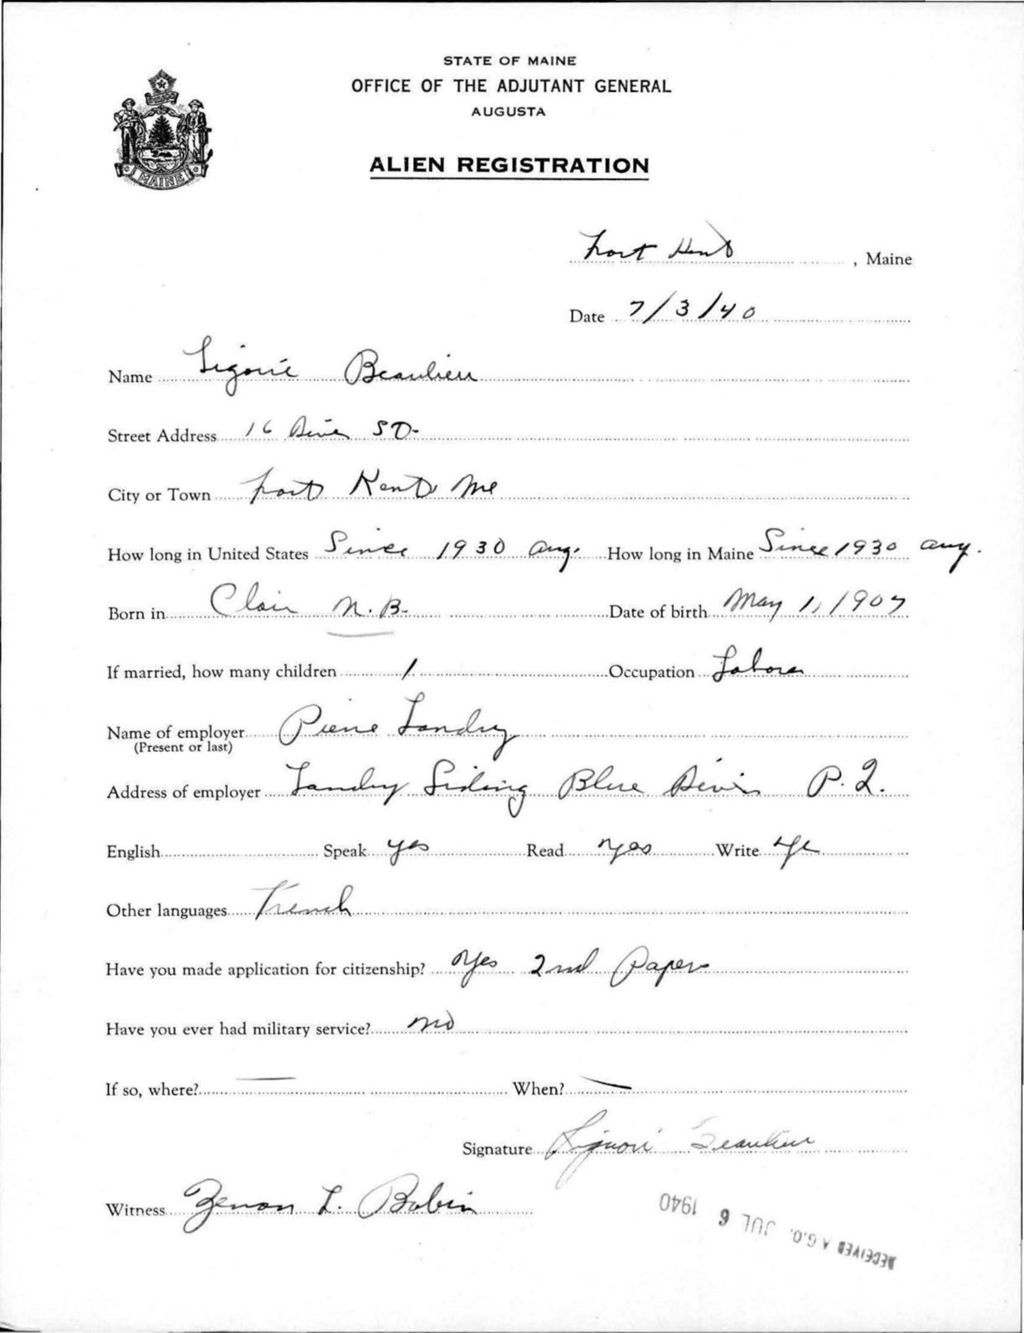 STATE OF MAINE
OFFICE OF THE ADJUTANT GENERAL
AUGUSTA
ALIEN REGISTRATION
MAINE
Fort Kent, Maine
Date 7/3/40
Name Ligorie Beaulieu
Street Address 16 River St.
City or Town Fort Kent Me
How long in United States Since 1930 Aug. How long in Maine Since 1930 Aug.
Born in Clair N.B. Date of birth May 1, 1907
If married, how many children 1 Occupation Laborer
Name of employer Pierre Landry
(Present or last)
Address of employer Landry Siding Blue River P.Q.
English Speak yes Read yes Write ye
Other languages French
Have you made application for citizenship? Yes 2nd Papers
Have you ever had military service? no
If so, where? — When? —
Signature Liguori Beaulieu
Witness Zenon L. Babin
RECEIVED A.G.O. JUL 6 1940